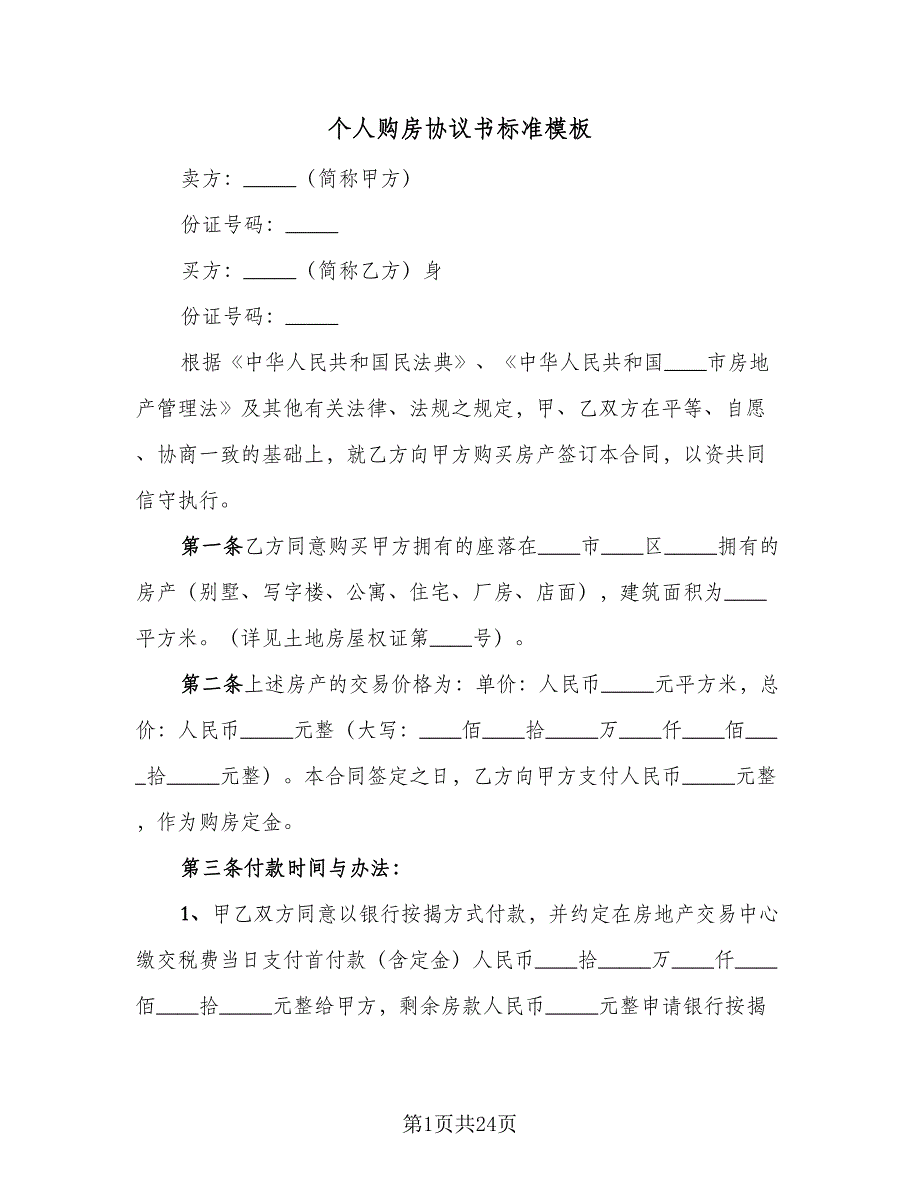 个人购房协议书标准模板
卖方：_____（简称甲方）
份证号码：_____
买方：_____（简称乙方）身
份证号码：_____
根据《中华人民共和国民法典》、《中华人民共和国____市房地
产管理法》及其他有关法律、法规之规定，甲、乙双方在平等、自愿
、协商一致的基础上，就乙方向甲方购买房产签订本合同，以资共同
信守执行。
第一条乙方同意购买甲方拥有的座落在____市____区_____拥有的
房产（别墅、写字楼、公寓、住宅、厂房、店面），建筑面积为____
平方米。（详见土地房屋权证第____号）。
第二条上述房产的交易价格为：单价：人民币_____元平方米，总
价：人民币_____元整（大写：____佰____拾_____万____仟____佰___
_拾_____元整）。本合同签定之日，乙方向甲方支付人民币_____元整
，作为购房定金。
第三条付款时间与办法：
1、甲乙双方同意以银行按揭方式付款，并约定在房地产交易中心
缴交税费当日支付首付款（含定金）人民币____拾_____万____仟____
佰____拾_____元整给甲方，剩余房款人民币_____元整申请银行按揭
第1页共24页